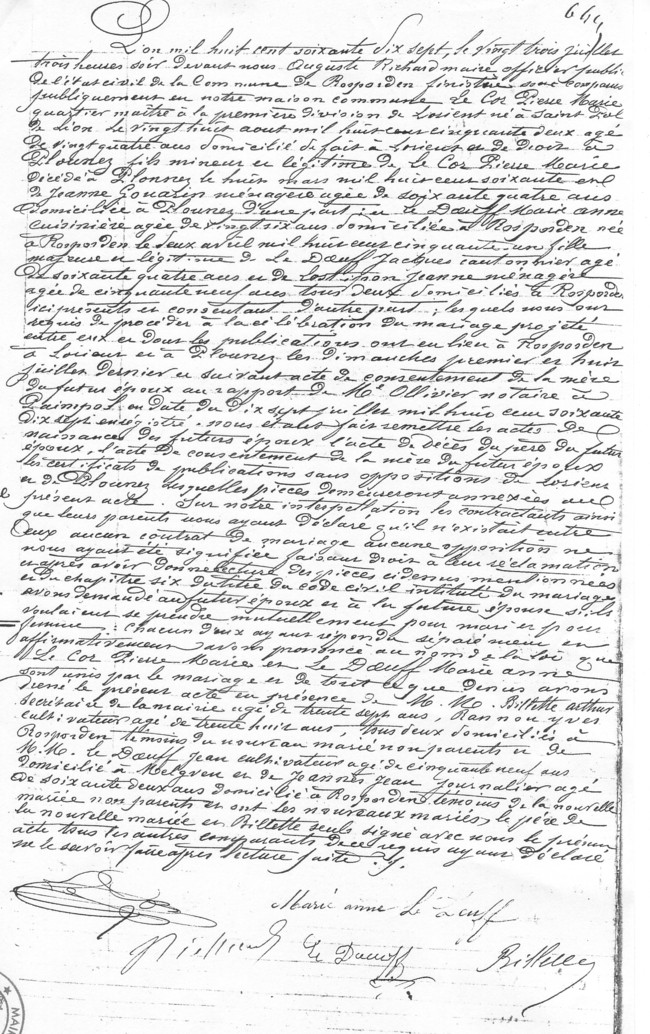 644
L'an mil huit cent soixante dix sept, le vingt trois juillet
trois heures soir devant nous Auguste Richard maire officier public
de l'état civil de la Commune de Rosporden finistère sont comparus
publiquement en notre maison commune Le Cor Pierre Marie
quartier maître à la première division de Lorient né à Saint Pol
de Léon le vingt huit aout mil huit cent cinquante deux agé
de vingt quatre ans domicilié de fait à Lorient et de Droit à
Plounez fils mineur et légitime de Le Cor Pierre Marie
décédé à Plounez le huit mars mil huit cent soixante et
de Jeanne ménagère agée de soixante quatre ans
domiciliée à Plounez d'une part ; et Le Dœuff Marie anne
cuisinière agée de vingt six ans domiciliée à Rosporden née
à Rosporden le deux avril mil huit cent cinquante un fille
majeure et légitime de Le Dœuff Jacques cantonnier agé
de soixante quatre ans et de Jeanne ménagère
agée de cinquante neuf ans tous deux domiciliés à Rosporden
ici présents et consentant d'autre part ; lesquels nous ont
requis de procéder à la célébration du mariage projeté
entre eux et dont les publications ont eu lieu à Rosporden
à Lorient et à Plounez les dimanches premier et huit
juillet dernier et suivant acte de consentement de la mère
du futur époux au rapport de Me Ollivier notaire à
Paimpol en date du dix sept juillet mil huit cent soixante
dix sept enregistré. nous étant fait remettre les actes de
naissances des futurs époux l'acte de décès du père du futur
époux, l'acte de consentement de la mère du futur époux
les certificats de publications sans oppositions de Lorient
et de Plounez lesquelles pièces demeureront annexées au
présent acte. Sur notre interpellation les contractants ainsi
que leurs parents nous ayant déclaré qu'il n'existait entre
eux aucun contrat de mariage aucune opposition ne
nous ayant été signifiée faisant droit à leur réclamation
et après avoir donné lecture des pièces ci dessus mentionnées
et du chapitre six du titre du code civil intitulé du mariage
avons demandé au futur époux et à la future épouse s'ils
voulaient se prendre mutuellement pour mari et pour
femme ; chacun d'eux ayant répondu séparément en
affirmativement avons prononcé au nom de la loi que
Le Cor Pierre Marie et Le Dœuff Marie anne
sont unis par le mariage et de tout ce que dessus avons
dressé le présent acte en présence de M. M. Billette arthur
Secrétaire de la mairie agé de trente sept ans, Rannou yves
cultivateur agé de trente huit ans, tous deux domiciliés à
Rosporden témoins du nouveau marié non parents et de
M. M. Le Dœuff Jean cultivateur agé de cinquante neuf ans
domicilié à Melgven et de Jeannès Jean journalier agé
de soixante deux ans domicilié à Rosporden témoins de la nouvelle
mariée non parents et ont les nouveaux mariés, le père de
la nouvelle mariée et Billette seuls signé avec nous le présent
acte tous les autres comparants de ce requis ayant déclaré
ne le savoir faire après lecture faite ./.
Marie anne Le Dœuff
Le Dœuff
Billette
MAI